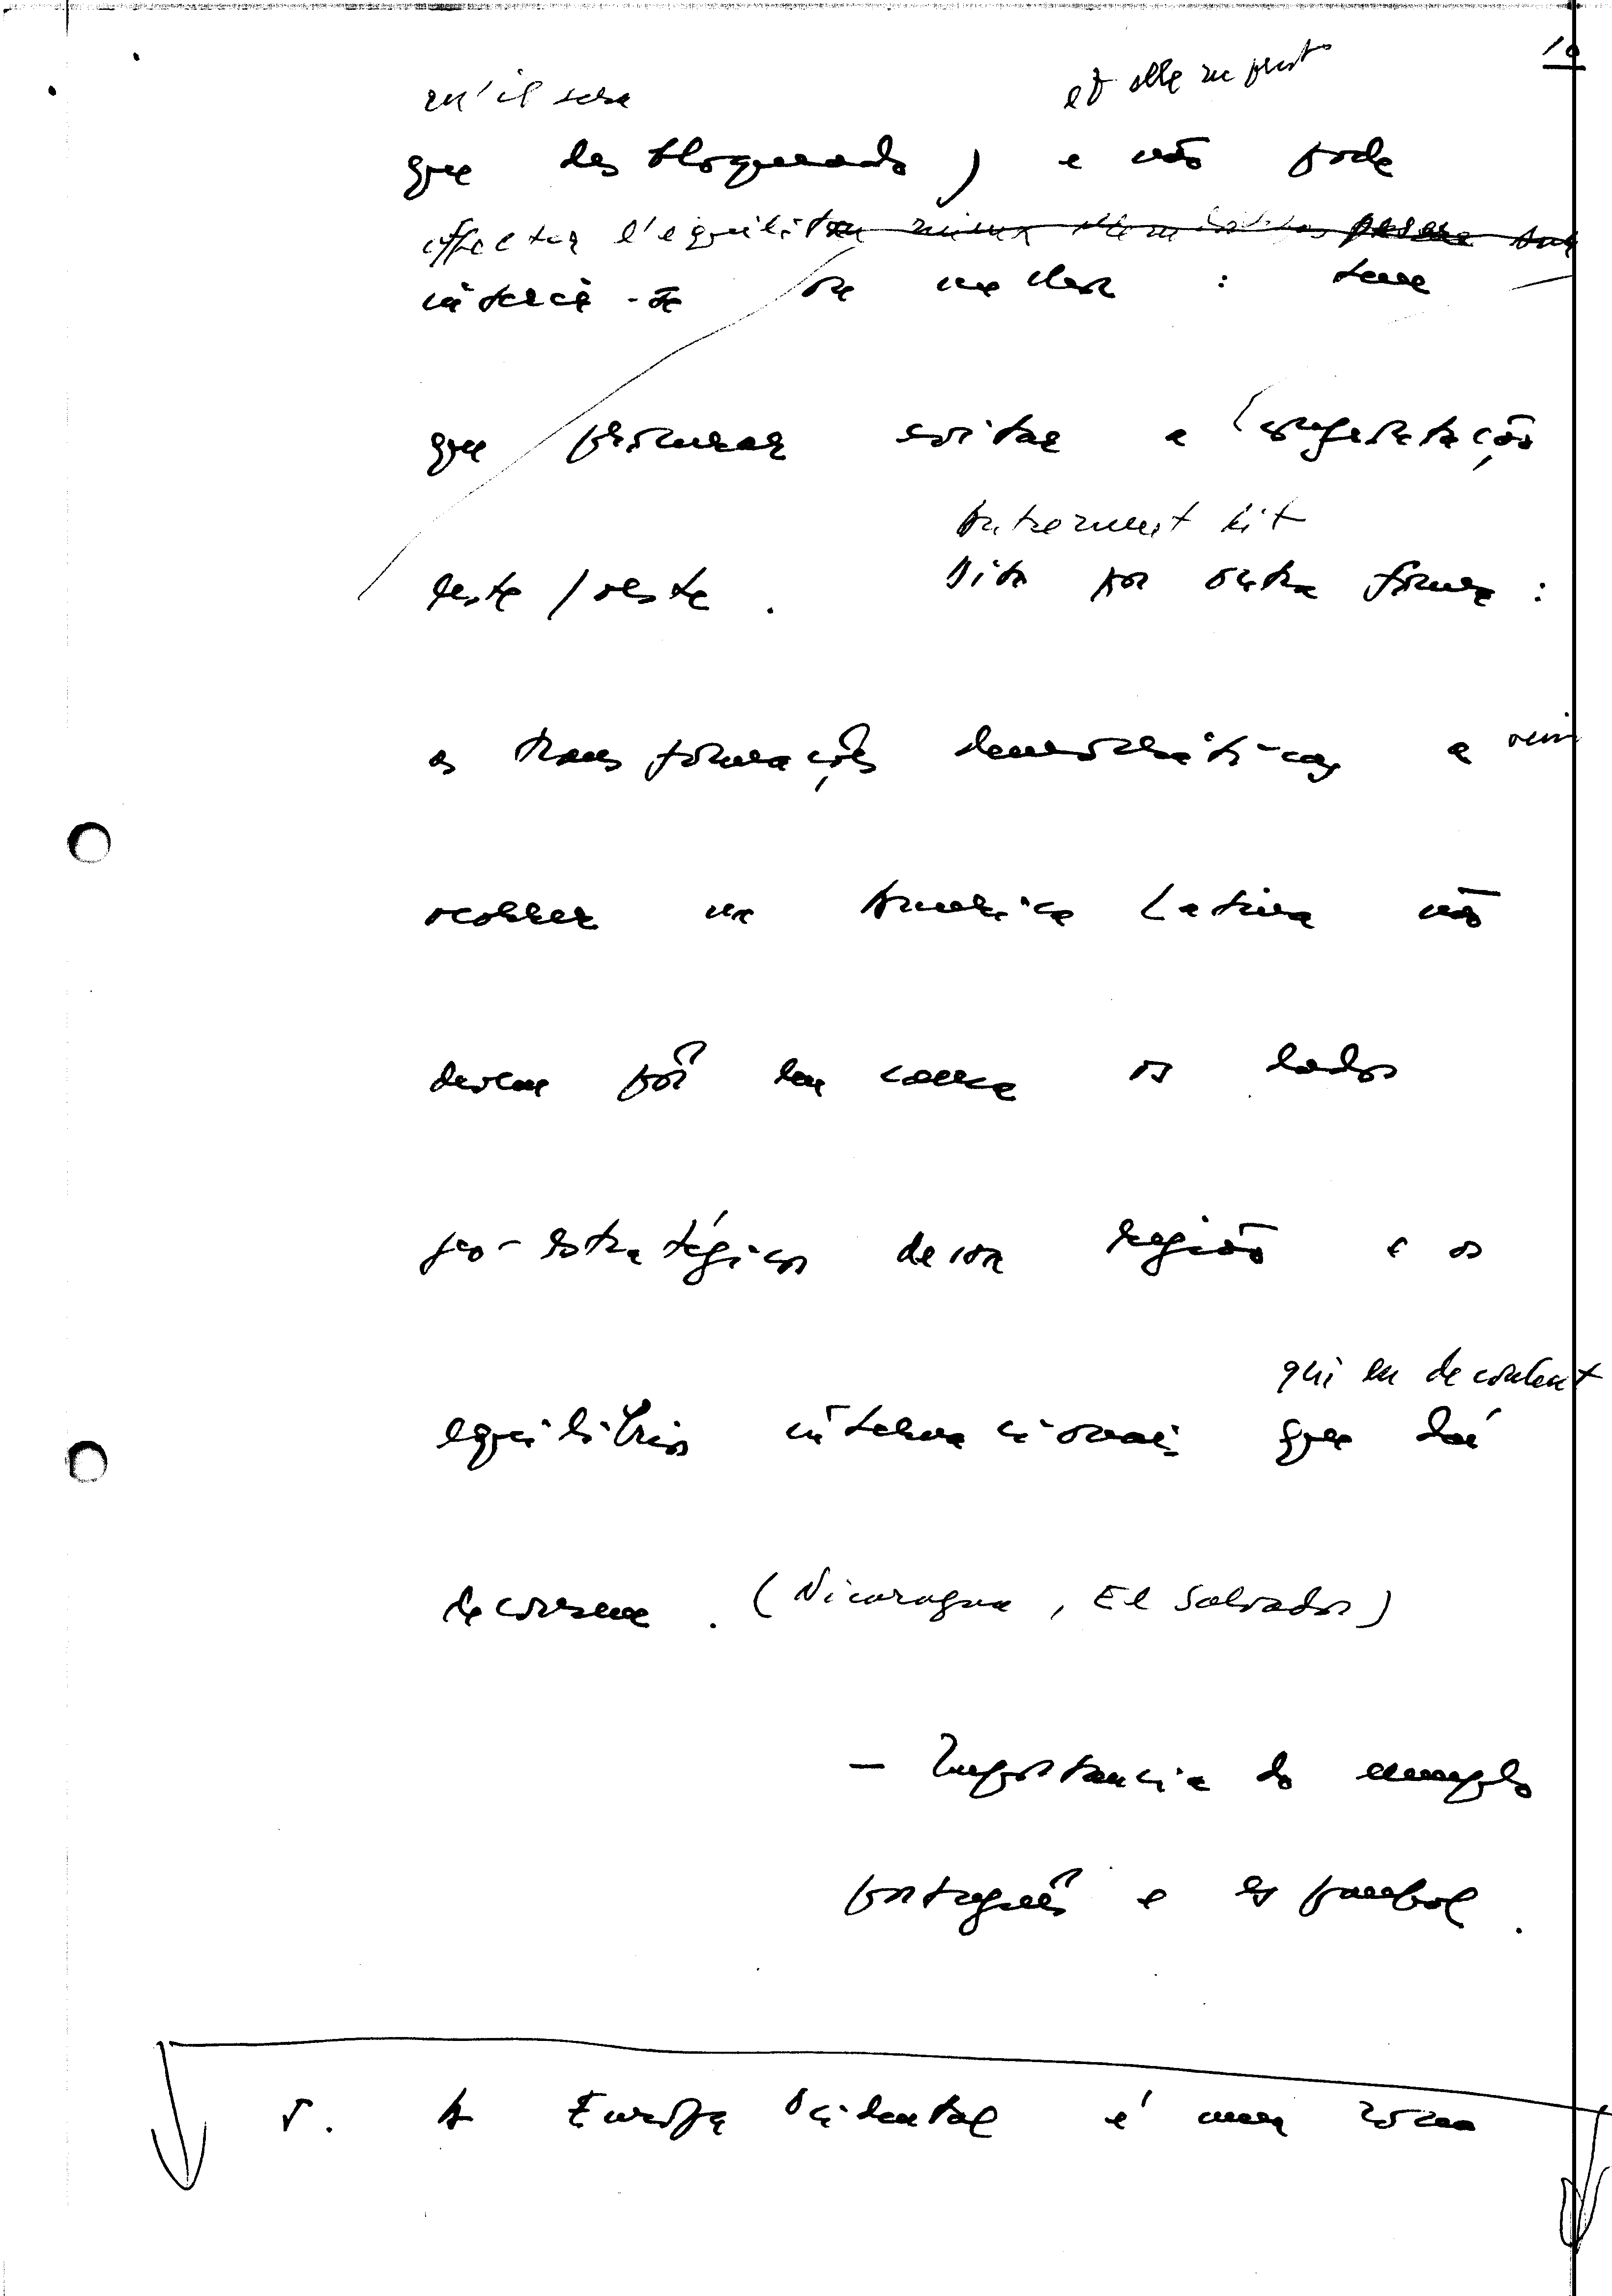 10
qu'il sera et elle ne peut
que desbloqueado) e não pode
affecter l'equilibre
inserir-se na : tem
que procurar evitar a confrontação
Autrement dit
leste / oeste. Dito por outra forma :
as transformações democráticas a
ocorrer na América Latina não
devem pôr em causa os dados
geo-estratégicos dessa região e os
qui en decoulent
equilíbrios internacionais que daí
decorrem. (Nicaragua, El Salvador)
— Importancia do exemplo
português e espanhol.
5. A Europa Ocidental é uma zona